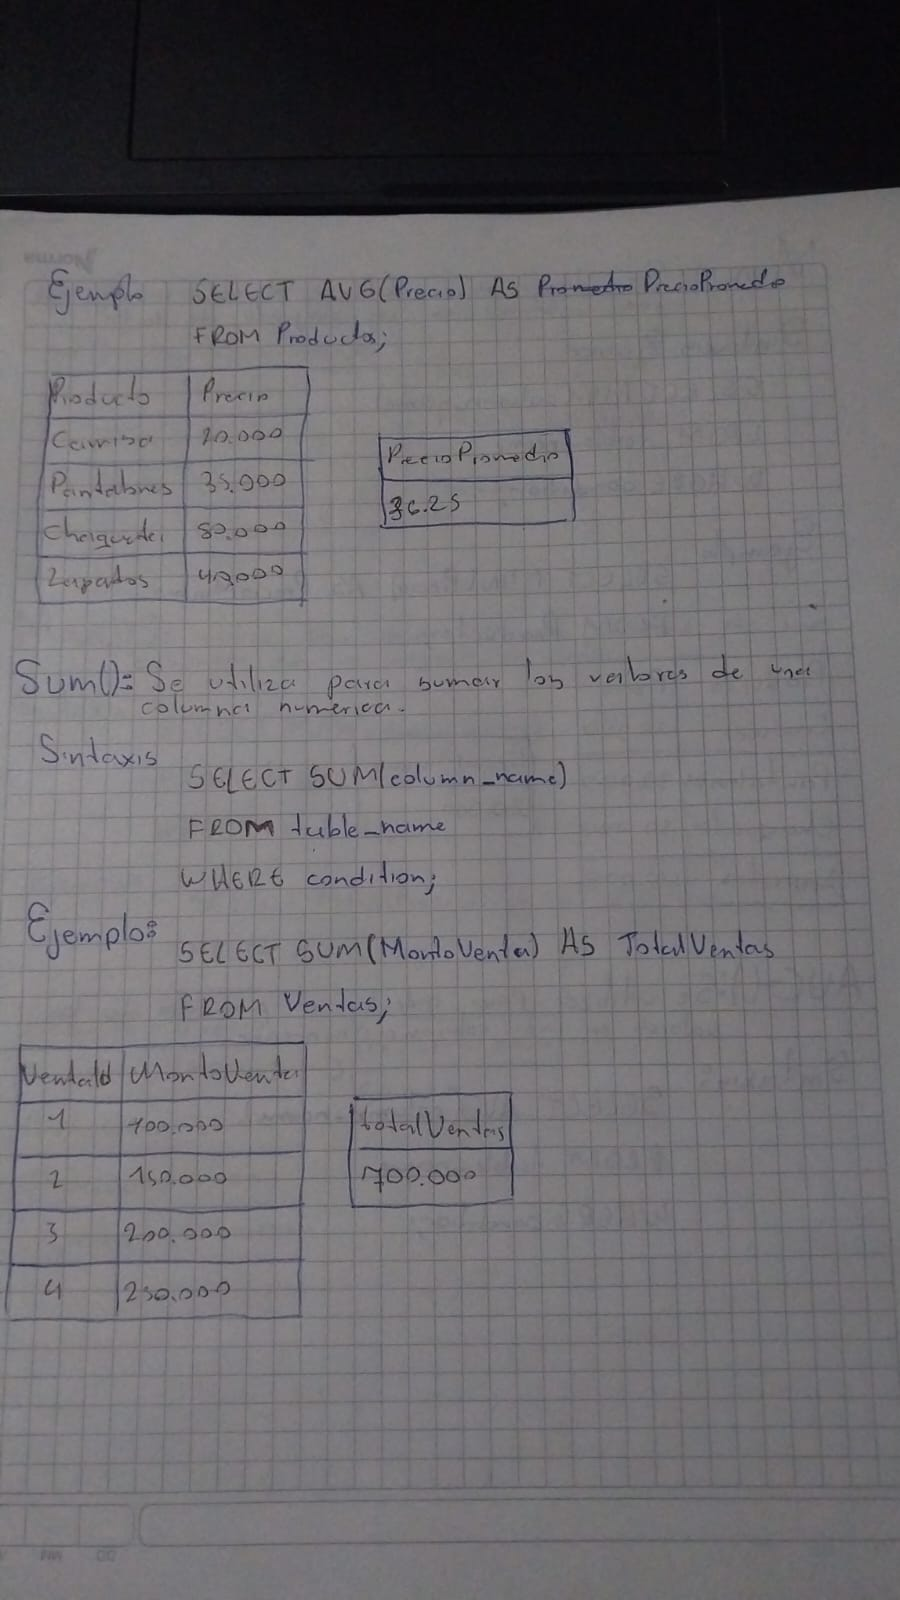 Norma
Ejemplo SELECT AVG(Precio) AS Promedio PrecioPromedio
FROM Productos;
Producto Precio
Camisa 20.000
Pantalones 35.000
Chaqueta 50.000
Zapatos 40.000
PrecioPromedio
36.25
Sum(): Se utiliza para sumar los valores de una
columna numerica.
Sintaxis
SELECT SUM(column_name)
FROM table_name
WHERE condition;
Ejemplo:
SELECT SUM(MontoVenta) AS TotalVentas
FROM Ventas;
VentaId MontoVenta
1 100.000
2 150.000
3 200.000
4 250.000
totalVentas
700.000